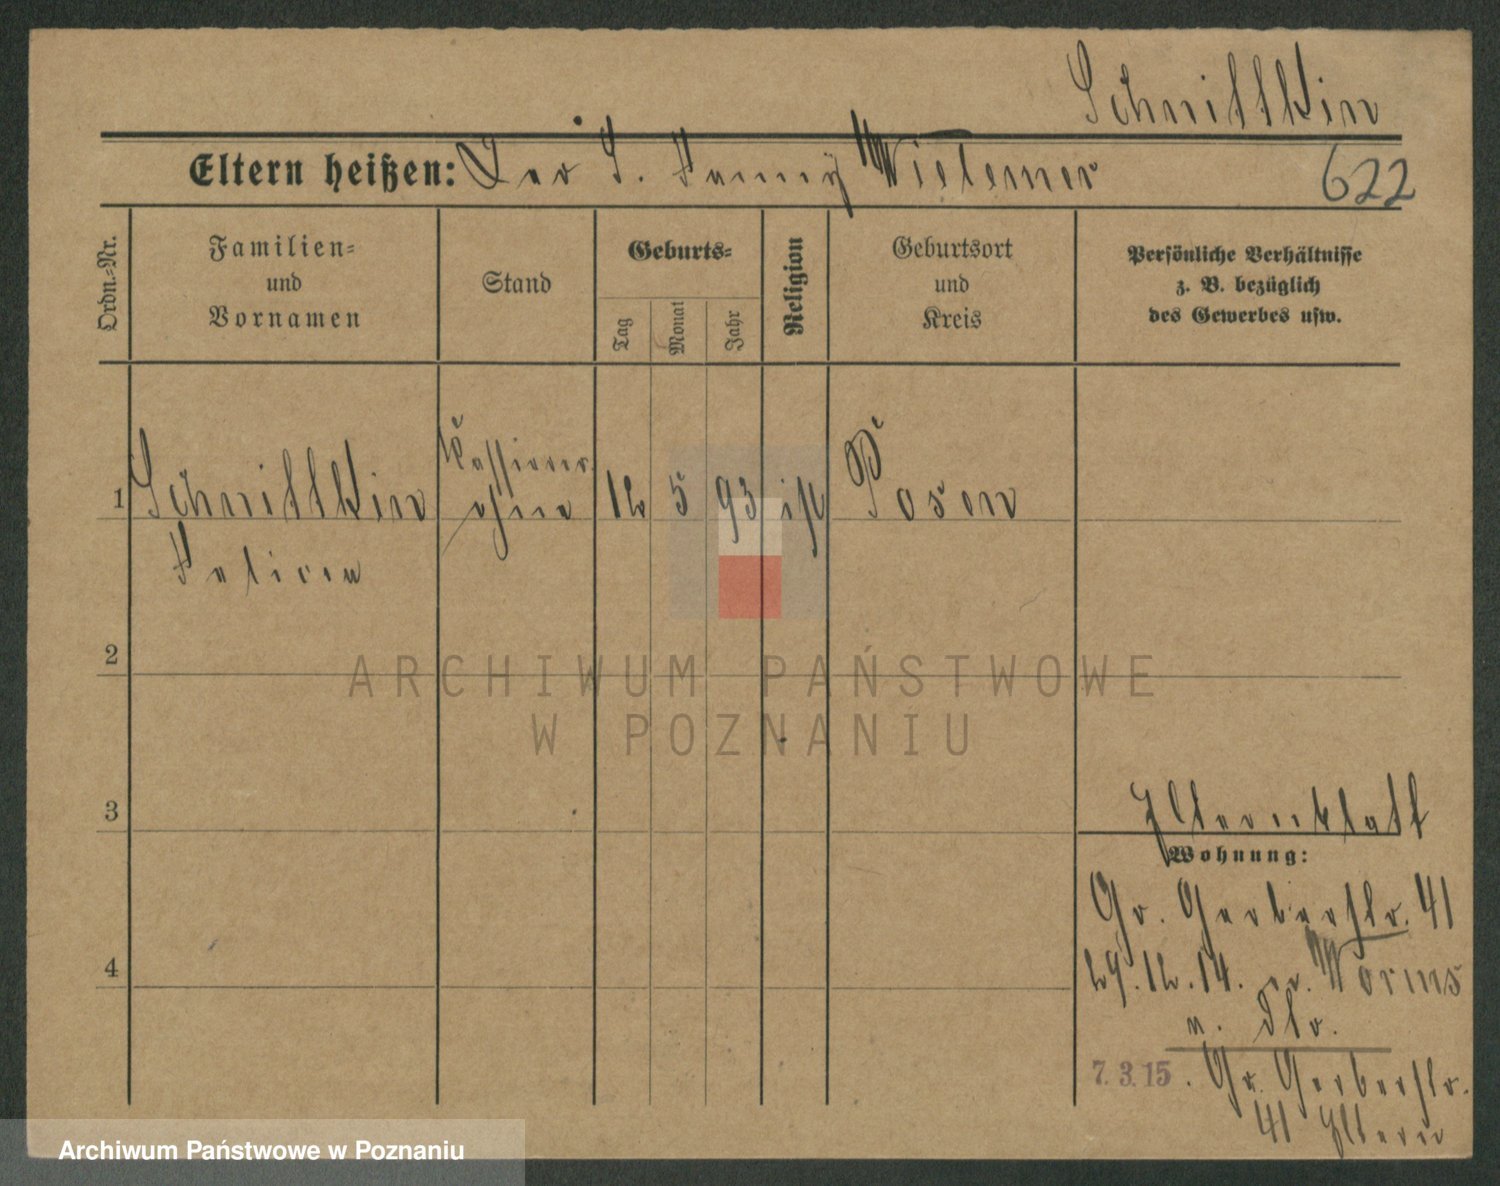 Schnittkin
Eltern heißen: Leo S. Fanny Wiesemer
622
Ordn.-Nr.
Familien-
und
Vornamen
Stand
Geburts-
Tag
Monat
Jahr
Religion
Geburtsort
und
Kreis
Persönliche Verhältnisse
z. B. bezüglich
des Gewerbes usw.
Kassierer
1 Schnittkin ohne 12 5 93 is Posen
Felicia
2
3
4
Elternblatt
Wohnung:
Gr. Gerberstr. 41
29.12.14. Worms
7.3.15. Gr. Gerberstr.
41 Eltern
ARCHIWUM PAŃSTWOWE
W POZNANIU
Archiwum Państwowe w Poznaniu